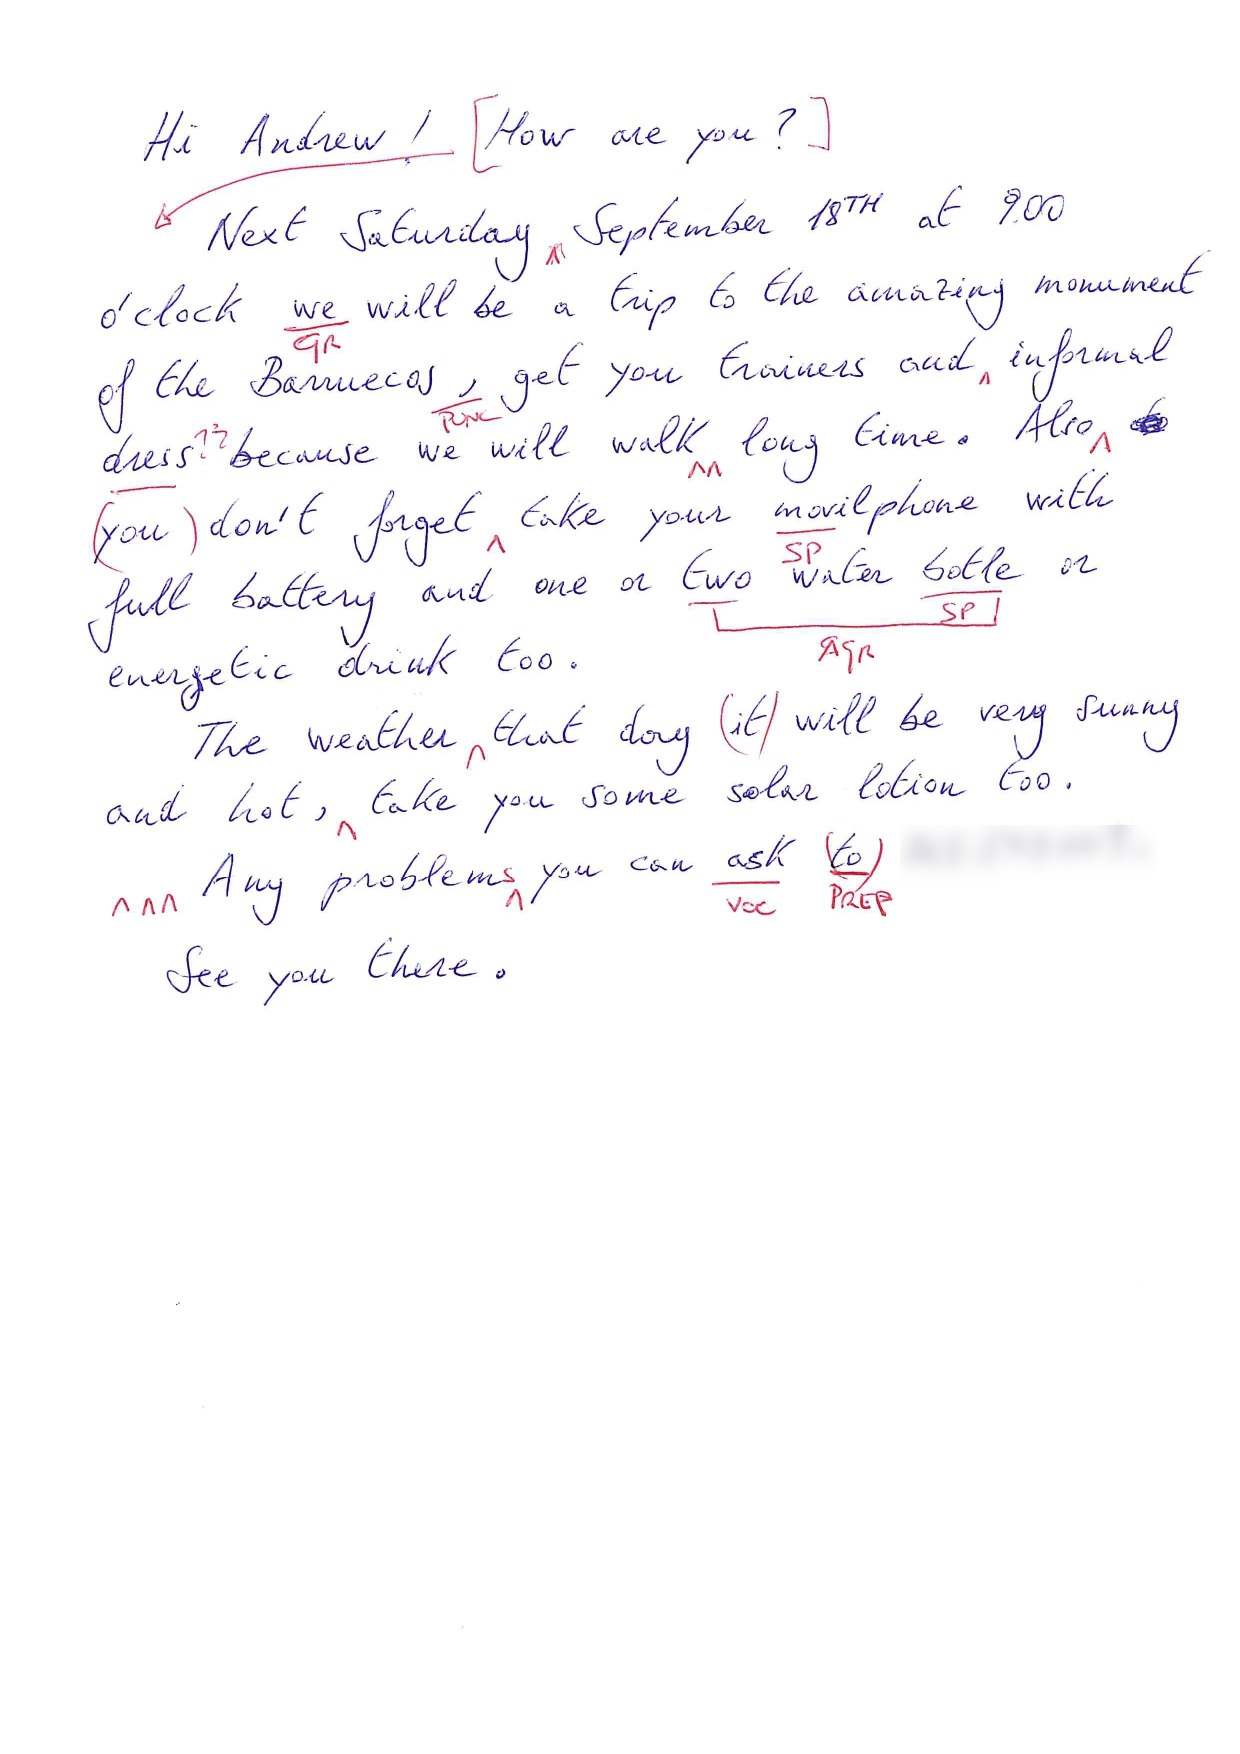 Hi Andrew! [How are you?]
Next Saturday ʌʌ September 18TH at 9.00
o'clock we will be a trip to the amazing monument
GR
of the Barruecos, get you trainers and ʌ informal
PUNC
dress?? because we will walk ʌʌ long time. Also ʌ
(you) don't forget ʌ take your movilphone with
SP
full battery and one or two water botle or
SP
AGR
energetic drink too.
The weather ʌ that day (it) will be very sunny
and hot, ʌ take you some solar lotion too.
ʌ ʌʌ Any problems ʌ you can ask (to)
VOC PREP
See you there.